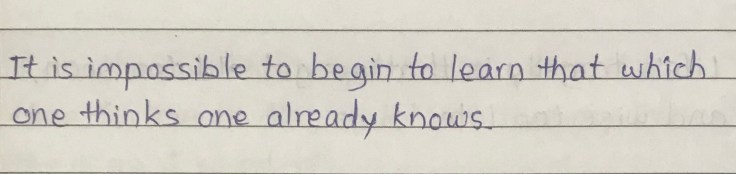 It is impossible to begin to learn that which
one thinks one already knows.